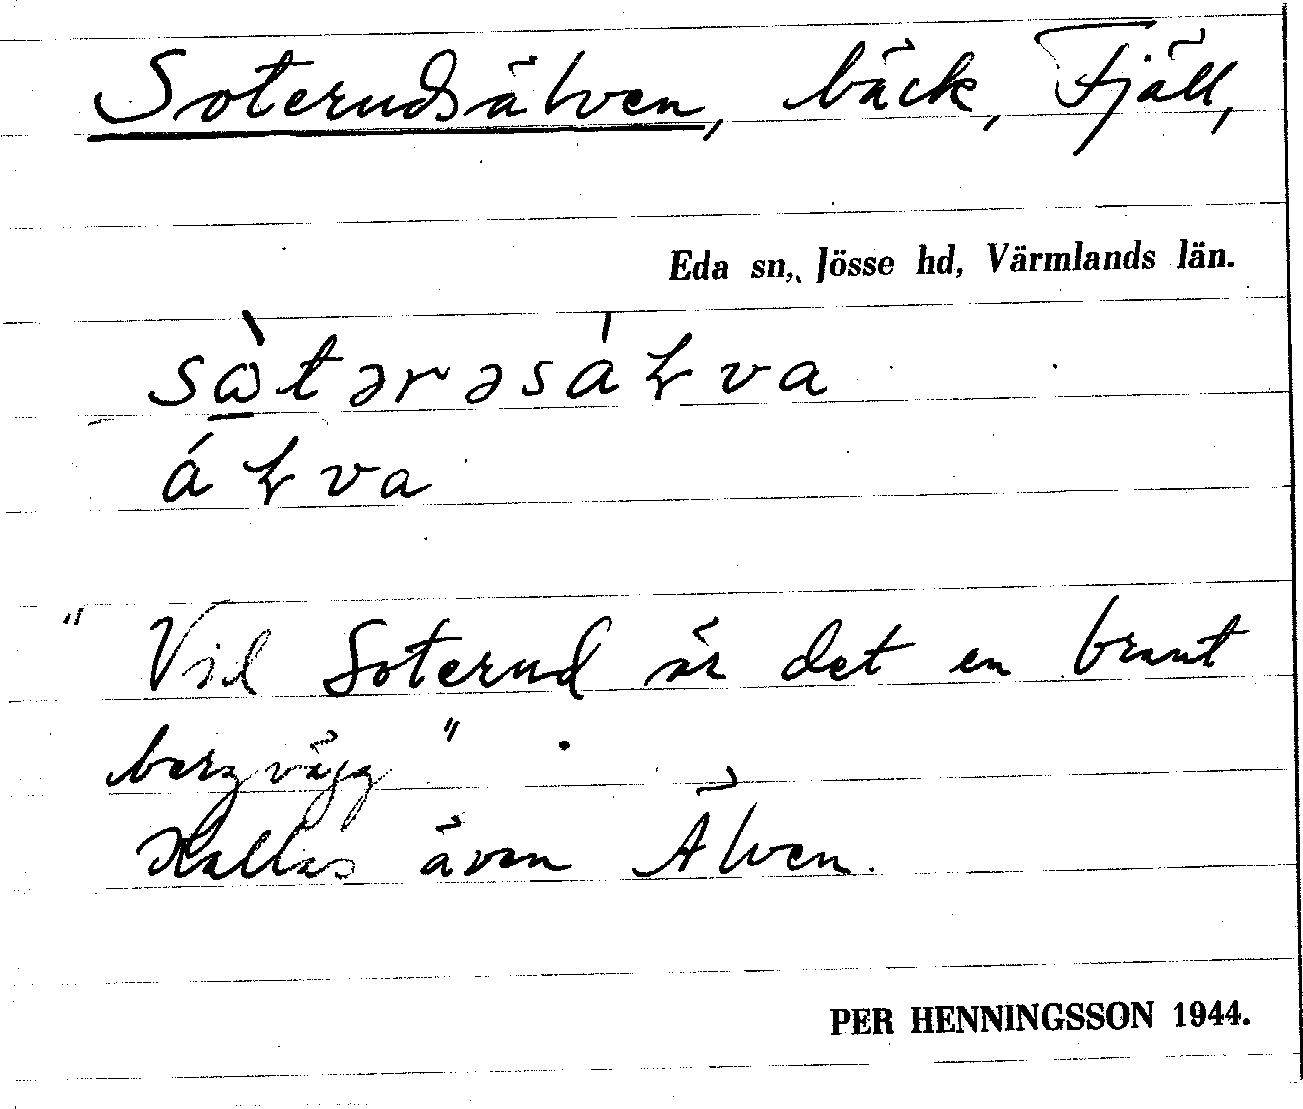 Soterudsälven, bäck, Fjäll,
Eda sn, Jösse hd, Värmlands län.
sὼ̲tərəsáꞎva
áꞎva
"Vid Soterud är det en brant
bergvägg".
Kallas även Älven.
PER HENNINGSSON 1944.